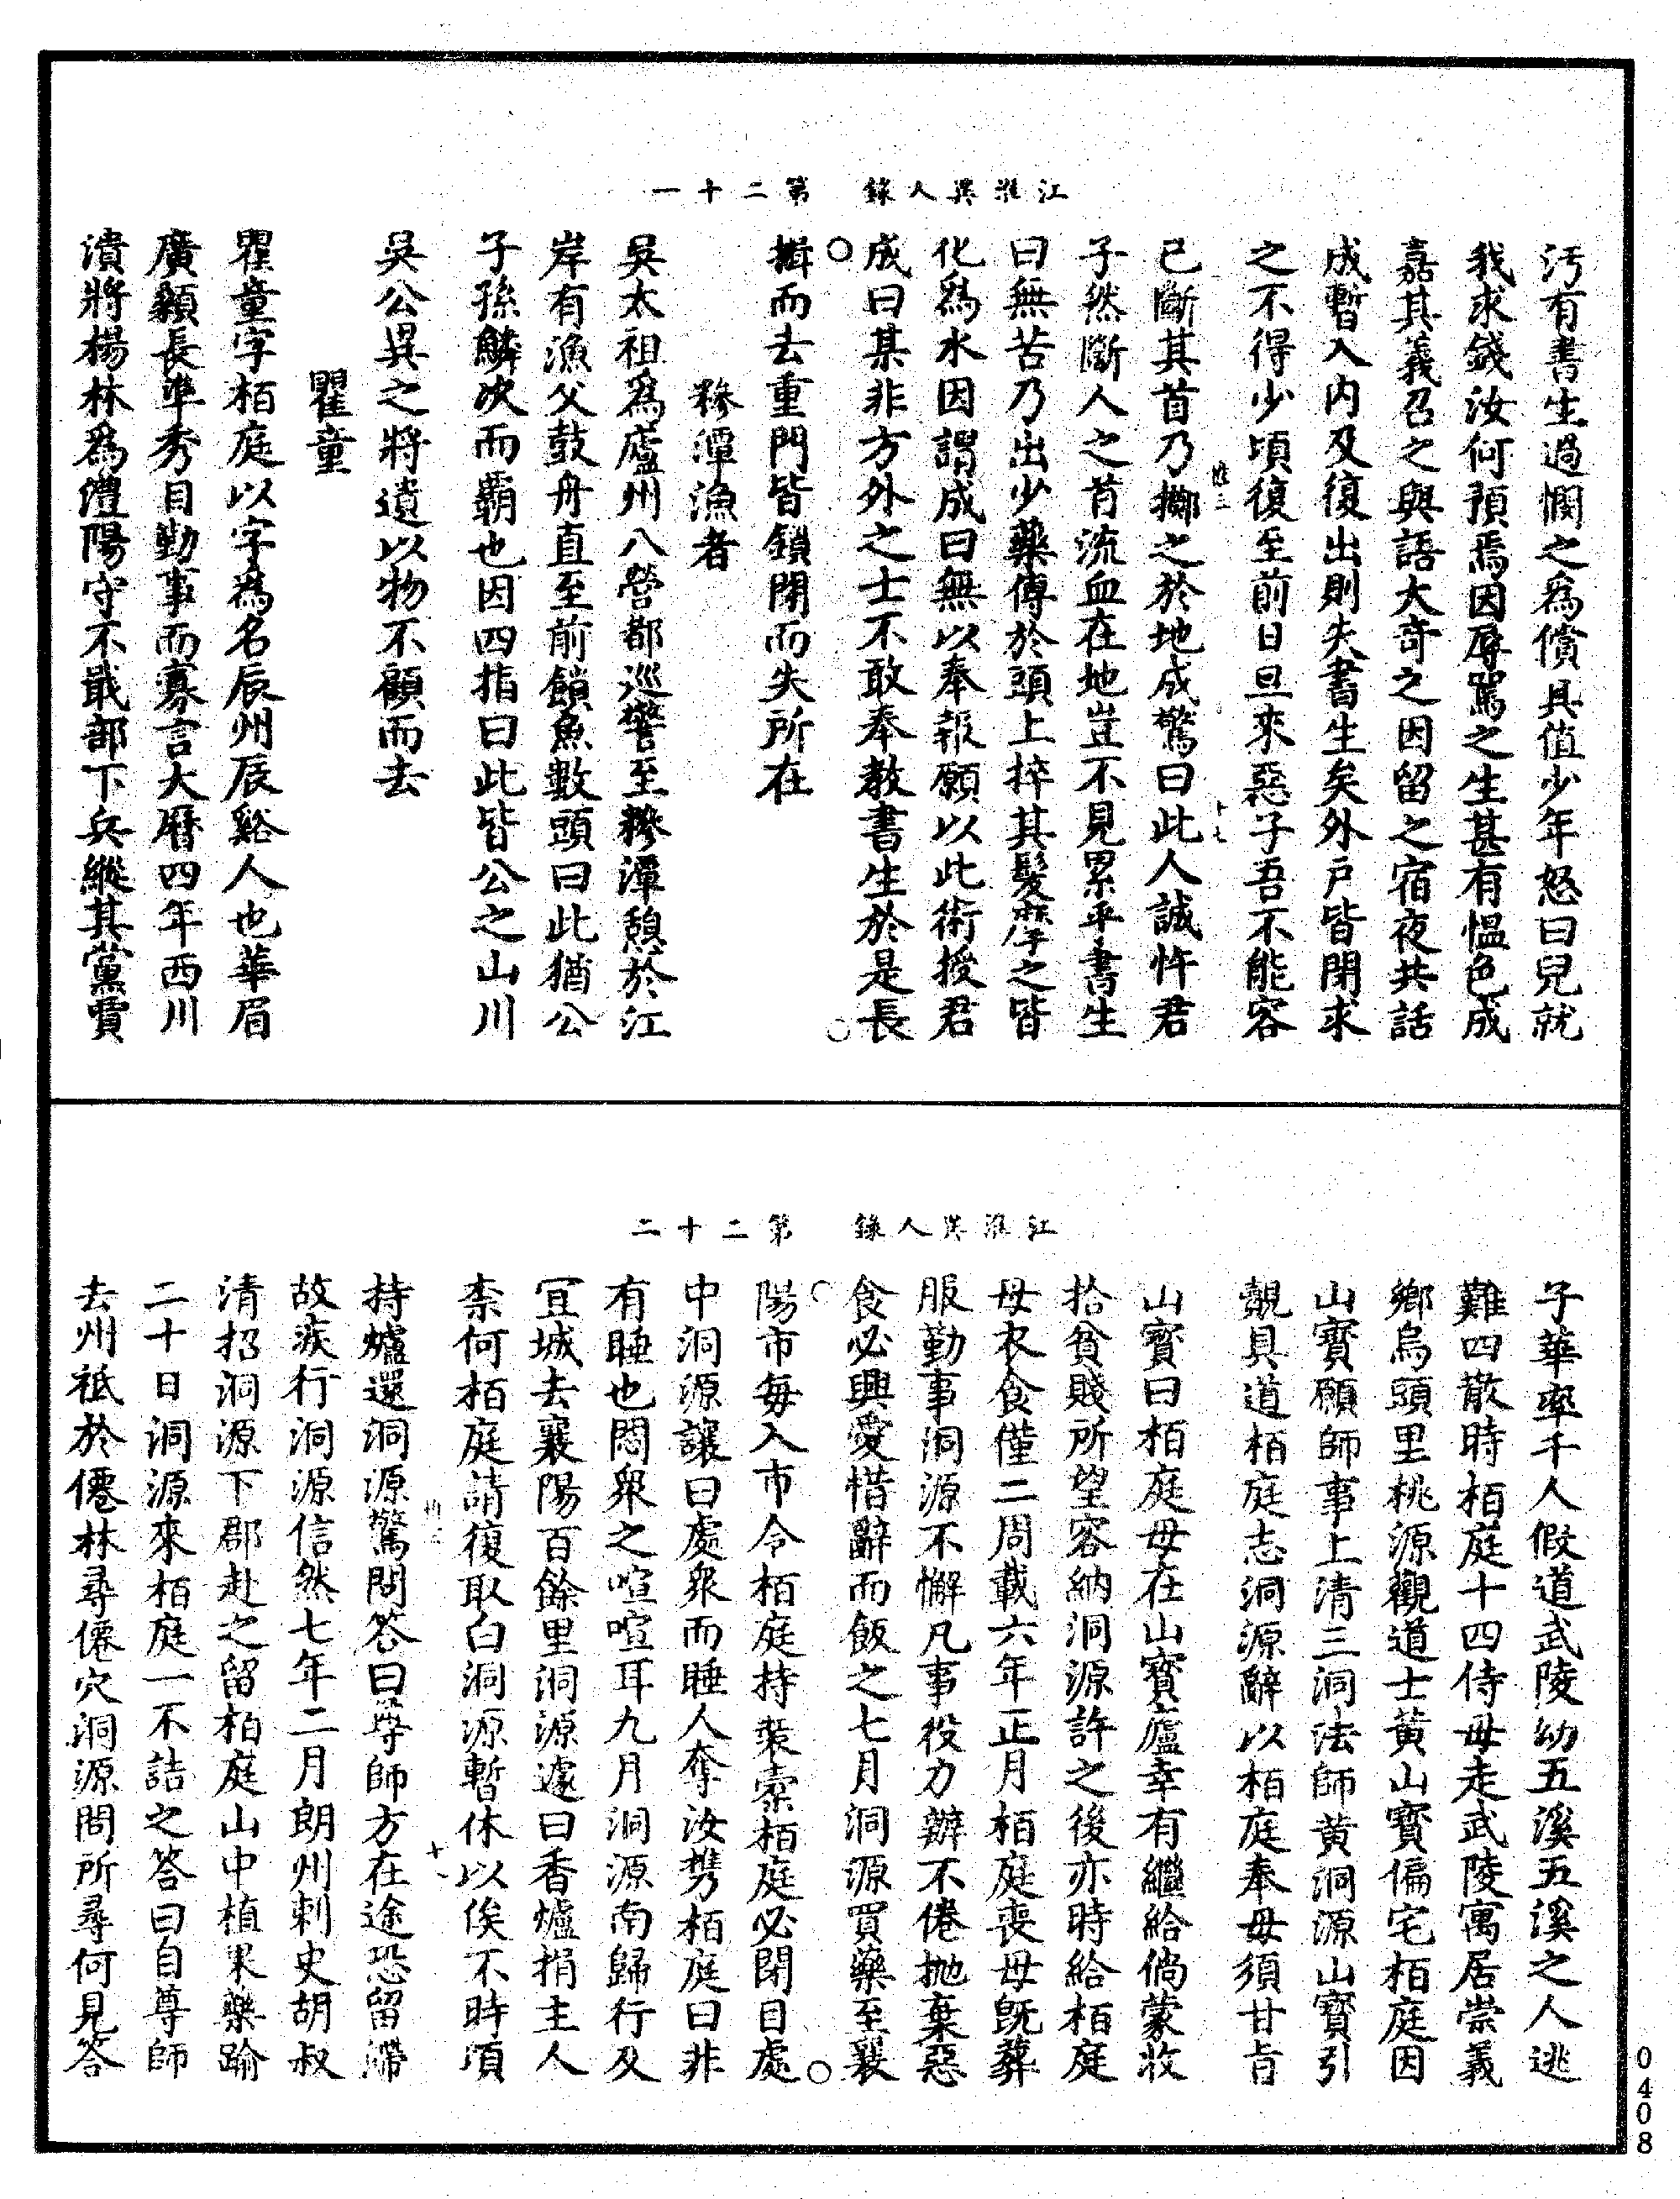 江淮異人錄　第二十一
汚有書生過憫之爲償其值少年怒曰兒就
我求錢汝何預焉因辱駡之生甚有慍色成
嘉其義召之與語大奇之因留之宿夜共話
成暫入內及復出則失書生矣外戶皆閉求
之不得少頃復至前曰旦來惡子吾不能容
已斷其首乃擲之於地成驚曰此人誠忤君
子然斷人之首流血在地豈不見累乎書生
曰無苦乃出少藥傅於頭上捽其髮摩之皆
化爲水因謂成曰無以奉報願以此術授君
成曰某非方外之士不敢奉教書生於是長
揖而去重門皆鎖閉而失所在
糝潭漁者
吳太祖爲廬州八營都巡警至糝潭憩於江
岸有漁父鼓舟直至前饋魚數頭曰此猶公
子孫鱗次而霸也因四指曰此皆公之山川
吳公異之將遺以物不顧而去
瞿童
瞿童字栢庭以字爲名辰州辰谿人也華眉
廣顙長準秀目勤事而寡言大曆四年西川
潰將楊林爲澧陽守不戢部下兵縱其黨賈
江淮異人錄　第二十二
子華率千人假道武陵幼五溪五溪之人逃
難四散時栢庭十四侍母走武陵寓居崇義
鄉烏頭里桃源觀道士黃山寳偏宅栢庭因
山寳願師事上清三洞法師黃洞源山寳引
覿具道栢庭志洞源辭以栢庭奉母須甘旨
山寳曰栢庭母在山寳廬幸有繼給倘蒙收
拾貧賤所望容納洞源許之後亦時給栢庭
母衣食僅二周載六年正月栢庭喪母旣葬
服勤事洞源不懈凡事役力辦不倦拋棄惡
食必興愛惜辭而飯之七月洞源買藥至襄
陽市每入市令栢庭持裝橐栢庭必閉目處
中洞源讓曰處衆而睡人奪汝携栢庭曰非
有睡也悶衆之喧喧耳九月洞源南歸行及
宜城去襄陽百餘里洞源遽曰香爐捐主人
柰何栢庭請復取白洞源暫休以俟不時頃
持爐還洞源驚問答曰尊師方在途恐留滯
故疾行洞源信然七年二月朗州刺史胡叔
清招洞源下郡赴之留栢庭山中植果藥踰
二十日洞源來栢庭一不詰之答曰自尊師
去州祗於僊林尋僊穴洞源問所尋何見答
0408